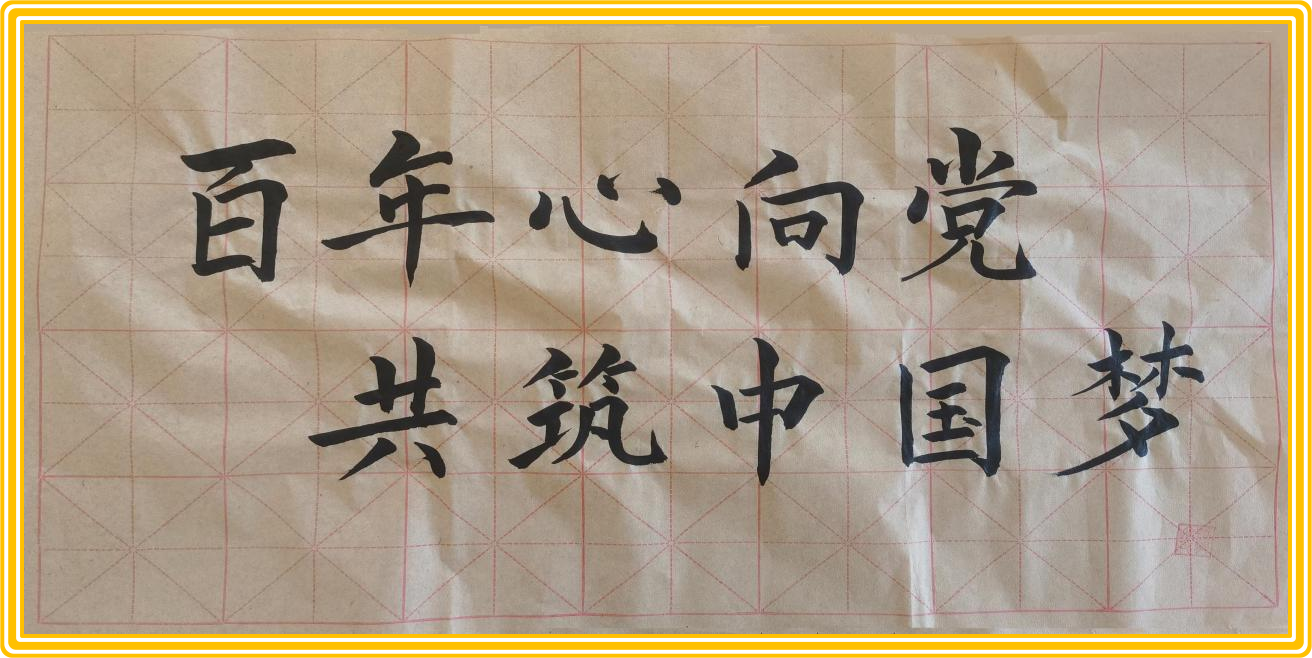 百年心向党
共筑中国梦